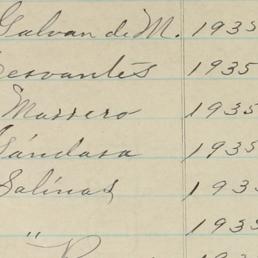 Galvan de M. 1935
Cervantes 1935
Marrero 1935
Gándara 1935
Salinas 193
" 193